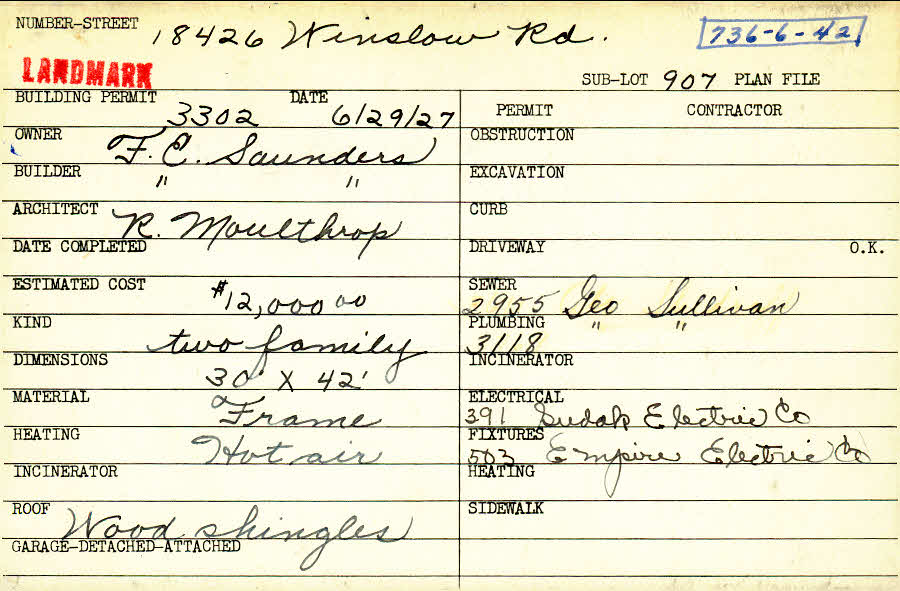 NUMBER-STREET 18426 Winslow Rd. 736-6-42
LANDMARK
SUB-LOT 907 PLAN FILE
BUILDING PERMIT 3302 DATE 6/29/27
OWNER F. C. Saunders
BUILDER " "
ARCHITECT R. Moulthrop
DATE COMPLETED
ESTIMATED COST $12,000 00
KIND two family
DIMENSIONS 30' X 42'
MATERIAL Frame
HEATING Hot air
INCINERATOR
ROOF Wood shingles
GARAGE-DETACHED-ATTACHED
PERMIT CONTRACTOR
OBSTRUCTION
EXCAVATION
CURB
DRIVEWAY O.K.
SEWER 2955 Geo Sullivan
PLUMBING 3118 " "
INCINERATOR
ELECTRICAL 391 Electric Co
FIXTURES 503 Empire Electric Co
HEATING
SIDEWALK